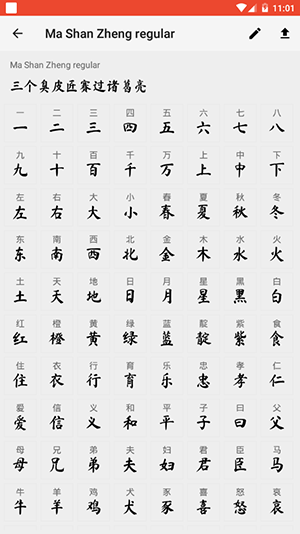 11:01
Ma Shan Zheng regular
Ma Shan Zheng regular
三个臭皮匠赛过诸葛亮
一 二 三 四 五 六 七 八
一 二 三 四 五 六 七 八
九 十 百 千 万 上 中 下
九 十 百 千 万 上 中 下
左 右 大 小 春 夏 秋 冬
左 右 大 小 春 夏 秋 冬
东 南 西 北 金 木 水 火
东 南 西 北 金 木 水 火
土 天 地 日 月 星 黑 白
土 天 地 日 月 星 黑 白
红 橙 黄 绿 蓝 靛 紫 食
红 橙 黄 绿 蓝 靛 紫 食
住 衣 行 育 乐 忠 孝 仁
住 衣 行 育 乐 忠 孝 仁
爱 信 义 和 平 子 曰 父
爱 信 义 和 平 子 曰 父
母 兄 弟 夫 妇 君 臣 马
母 兄 弟 夫 妇 君 臣 马
牛 羊 鸡 犬 豕 喜 怒 哀
牛 羊 鸡 犬 豕 喜 怒 哀